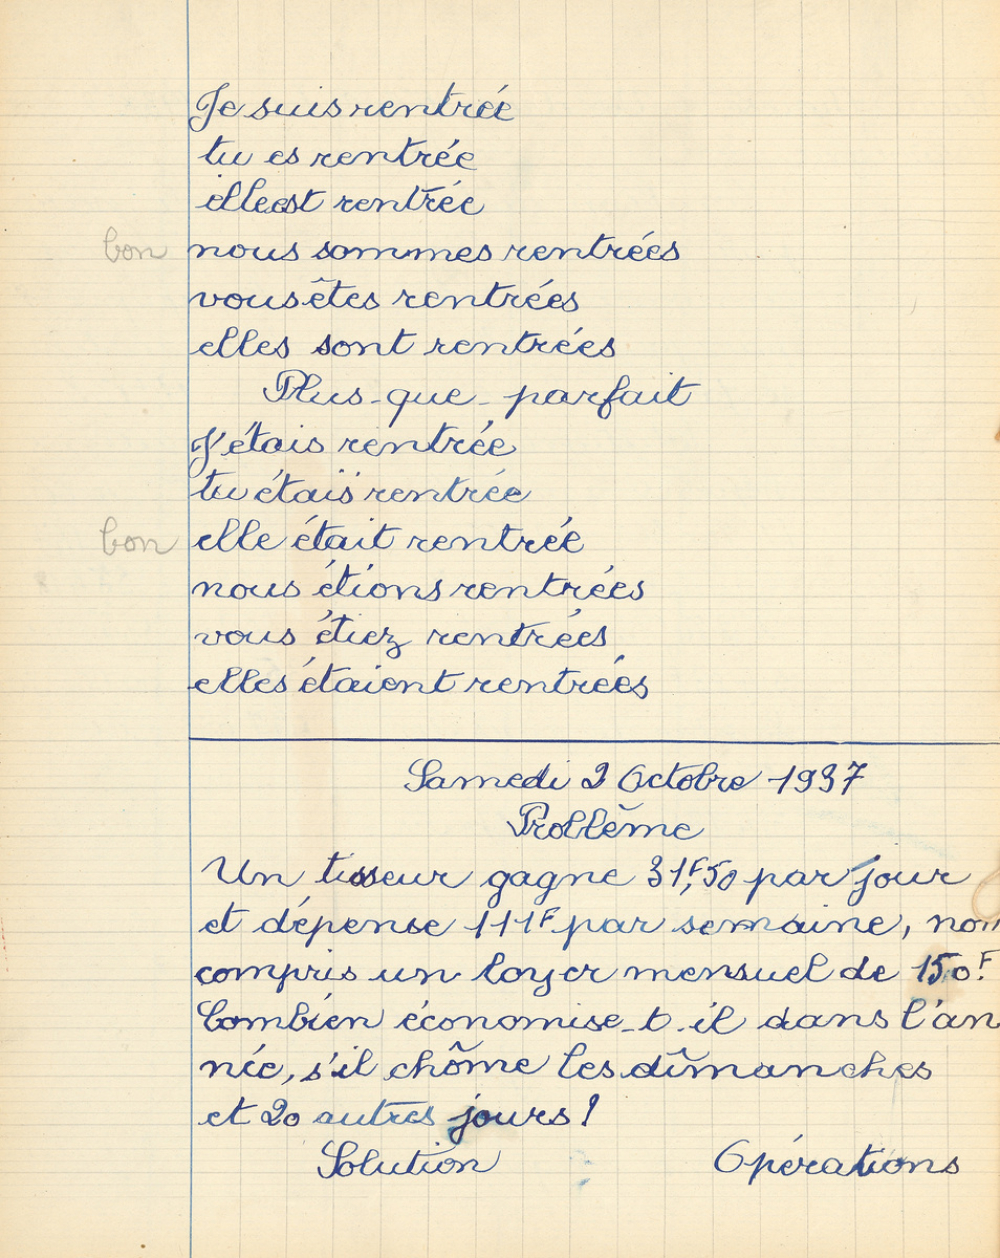 Je suis rentrée
tu es rentrée
elle est rentrée
bon nous sommes rentrées
vous êtes rentrées
elles sont rentrées
Plus-que-parfait
J'étais rentrée
tu étais rentrée
bon elle était rentrée
nous étions rentrées
vous étiez rentrées
elles étaient rentrées
Samedi 2 Octobre 1937
Problème
Un tisseur gagne 31F,50 par jour
et dépense 111F par semaine, non
compris un loyer mensuel de 150F.
Combien économise-t-il dans l'an
née, s'il chôme les dimanches
et 20 autres jours?
Solution Opérations